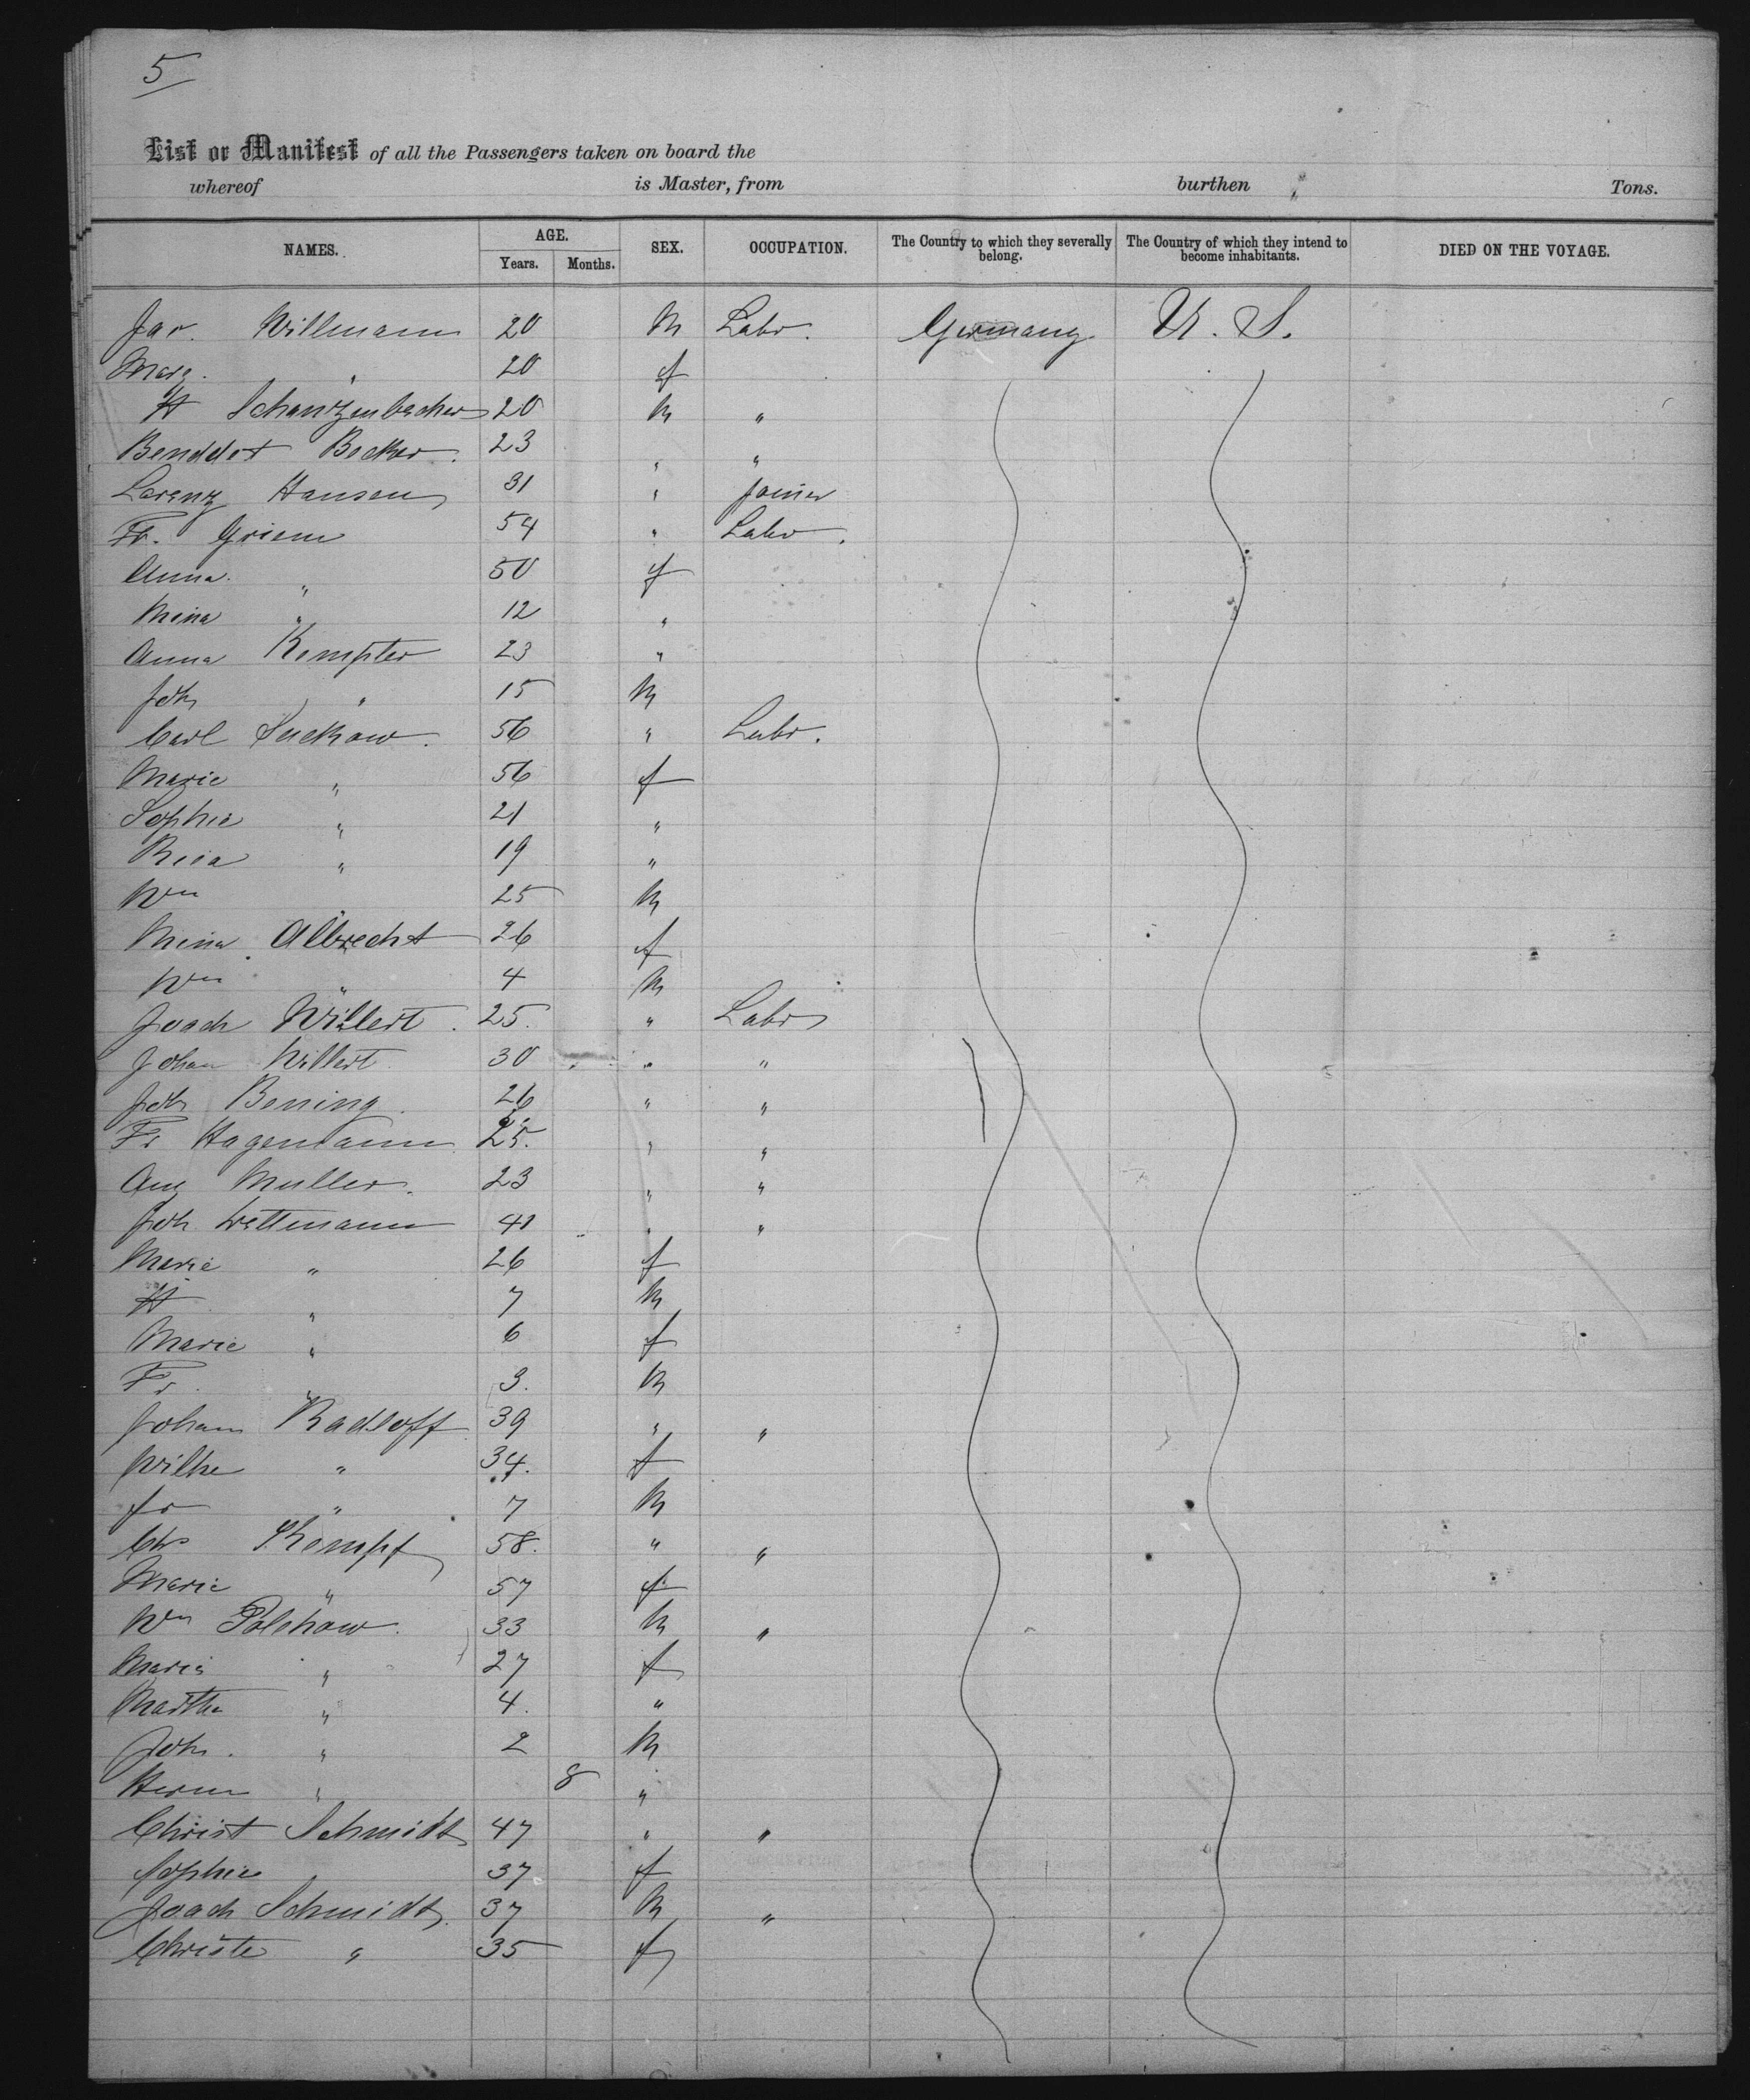 5
List or Manifest of all the Passengers taken on board the
whereof is Master, from burthen Tons.
NAMES. AGE. SEX. OCCUPATION. The Country to which they severally belong. The Country of which they intend to become inhabitants. DIED ON THE VOYAGE.
Years. Months.
Jac. Willmann 20 M Labr. Germany U. S.
Marg. " 20 f
H Schantzenbecher 20 M "
Benddet Becker. 23 " "
Lorenz Hansen 31 " Joiner
Fr. Griem 54 " Labr.
Anna " 50 f
Mina " 12 "
Anna Kempter 23 "
Joh " 15 M
Carl Suckow. 56 " Labr.
Marie " 56 f
Sophie " 21 "
" 19 "
Wm 25 M
Mina Albrecht 26 f
Wm " 4 M
Joach Willert. 25. " Labr
Johan Willert 30 " "
Joh Bening. 26 " "
Fr Hagemann 25. " "
Aug Muller. 23 " "
Joh Wettmann 41 " "
Marie " 26 f
H " 7 M
Marie " 6 f
Fr. " 3. M
Joham Radloff 39 " "
Wilhe " 34. f
Fr " 7 M
Chr Kempf 58. " "
Marie " 57 f
Wm Polchow. 33 M "
Maria " 27 f
Martha " 4. "
Joh. " 2 M
Herm " 8 "
Christ Schmidt 47 " "
Sophie " 37 f
Joach Schmidt. 37 M "
Christe " 35 f